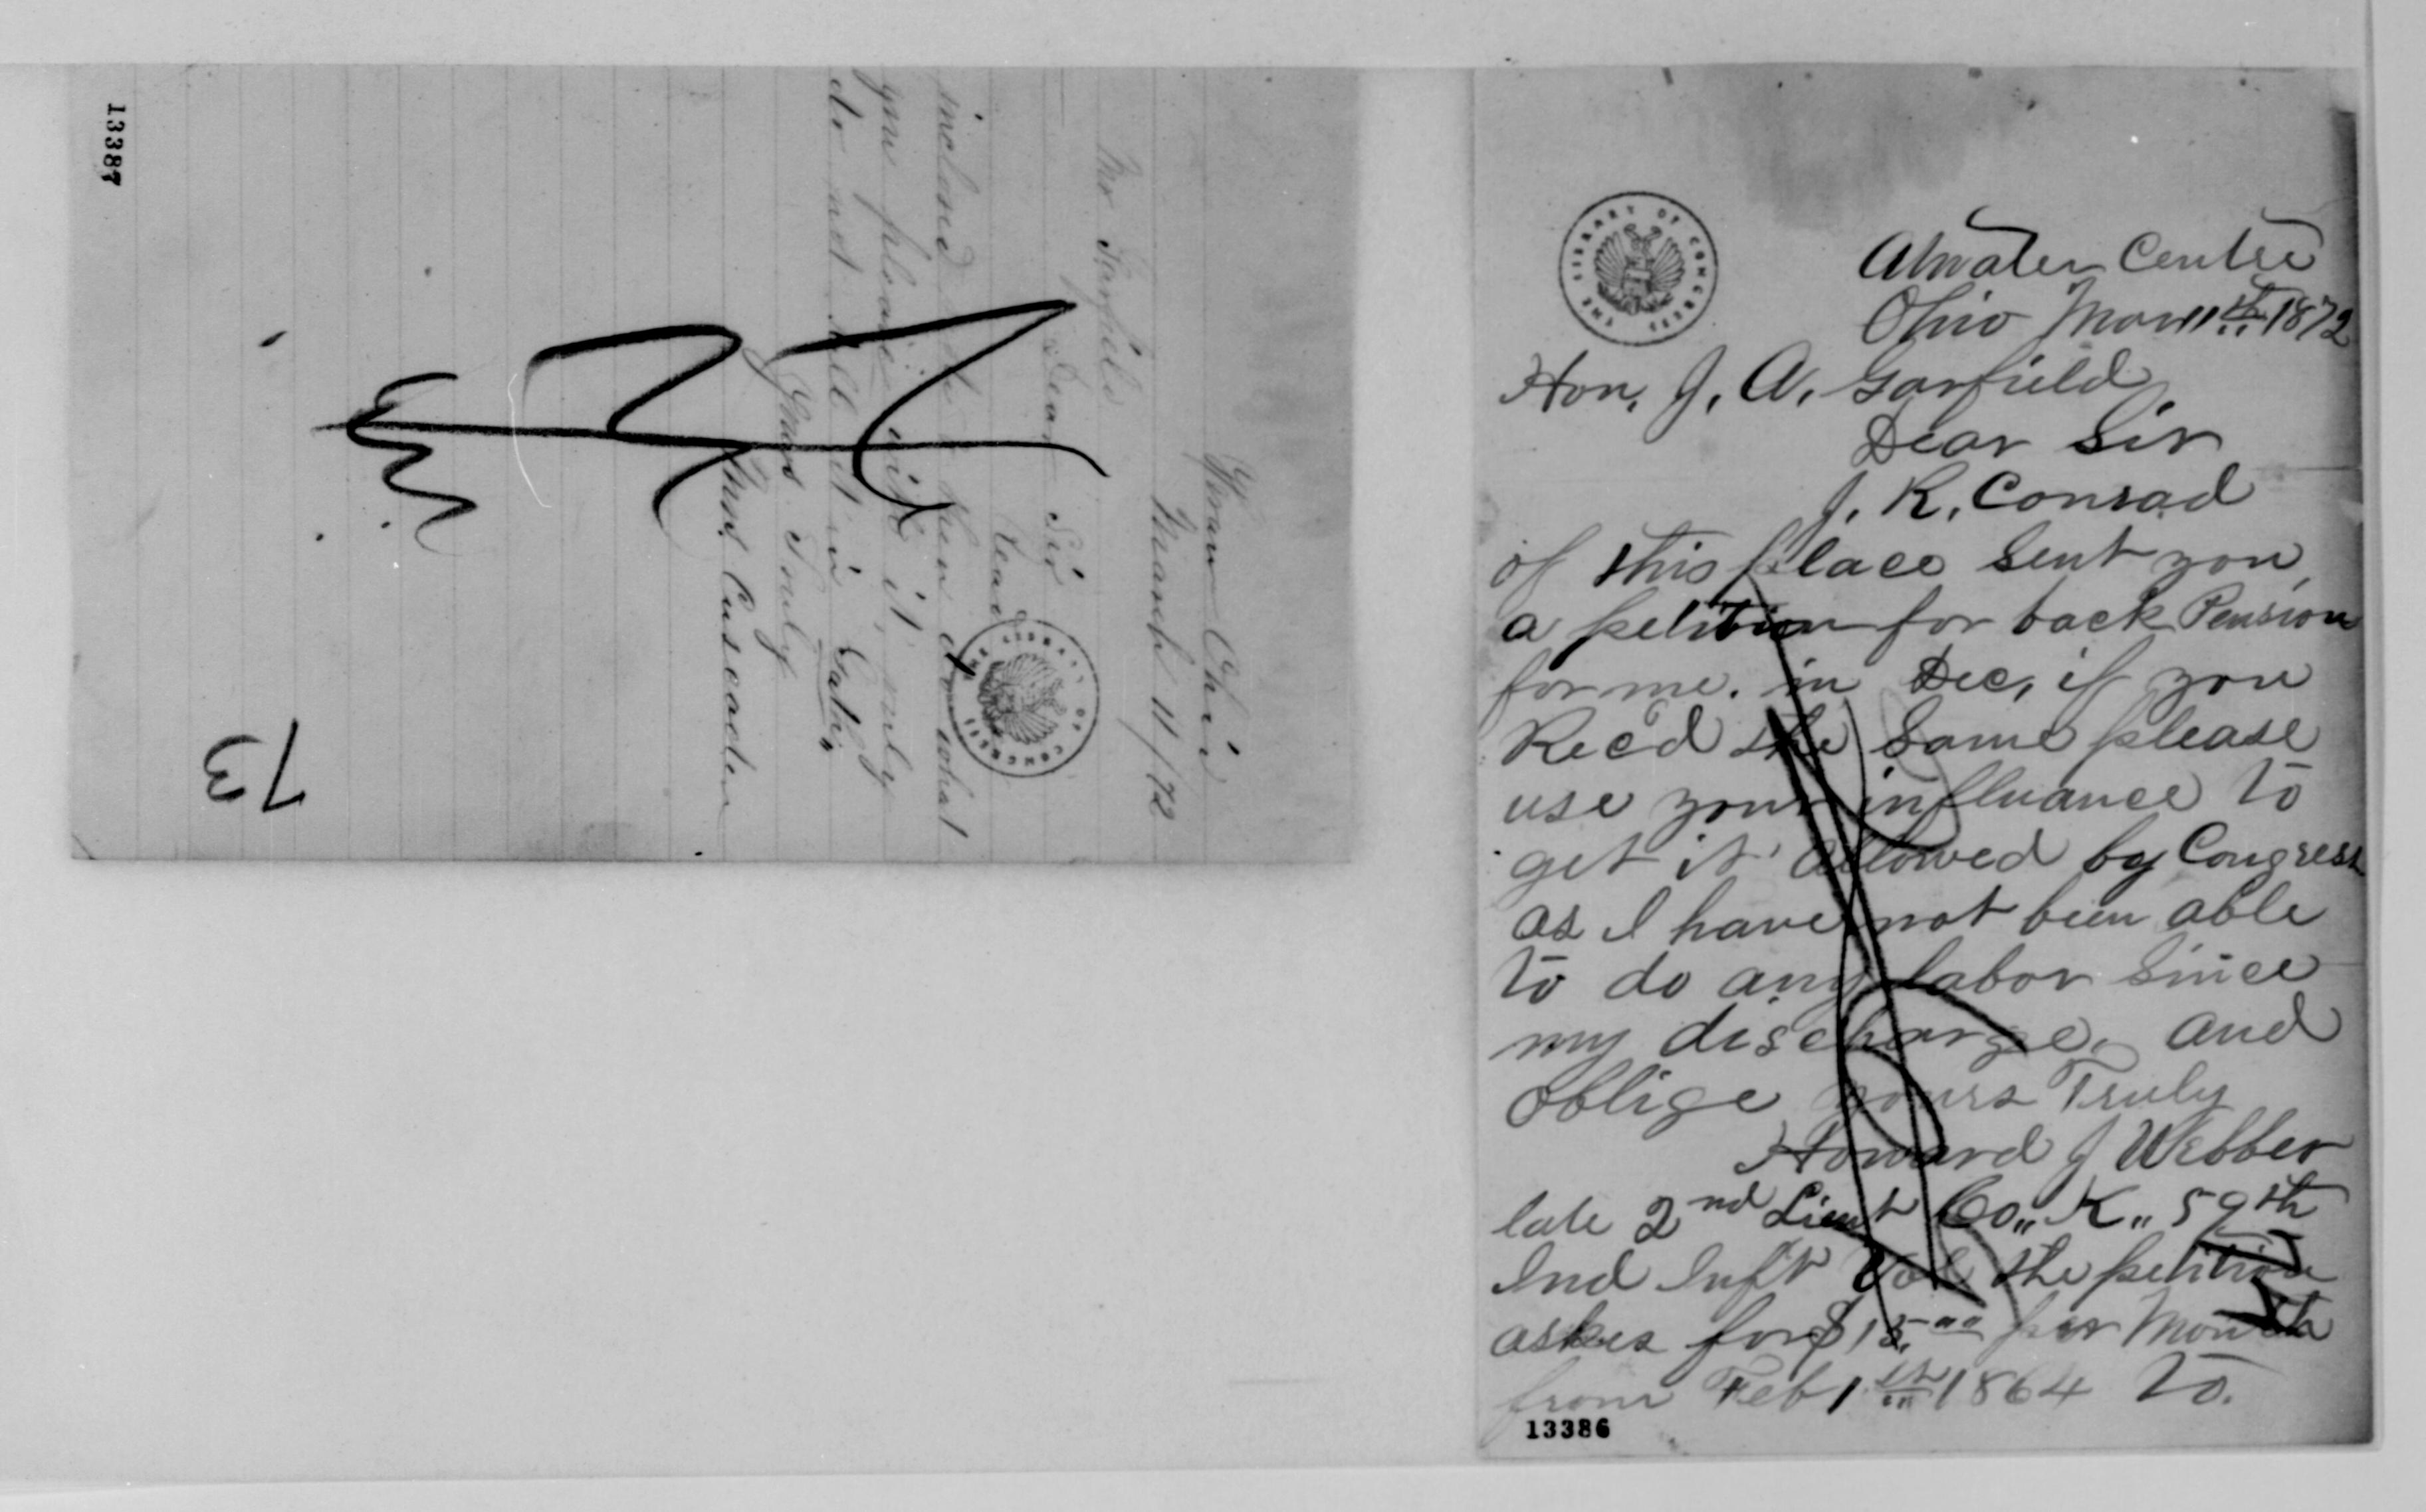 Hiram Ohio
March 11/72
Mr Garfield
Dear Sir
inclined
you please it, only
do not let it in
Yours Truly
THE LIBRARY OF CONGRESS
13387
73
THE LIBRARY OF CONGRESS
Atwater Center
Ohio Mar 11th 1872
Hon. J. A. Garfield
Dear Sir
J. R. Conrad
of this place Sent you
a petition for back Pension
for me. in Dec, if you
Rec'd the Same please
use your influance to
get it allowed by Congress
as I have not been able
to do any labor Since
my discharge. and
oblige yours Truly
Howard J Webber
late 2nd Lieut Co,, K,, 59th
Ind Inft Vol the petition
askes for $15.00 per Month
from Feb 1st 1864 to.
13386